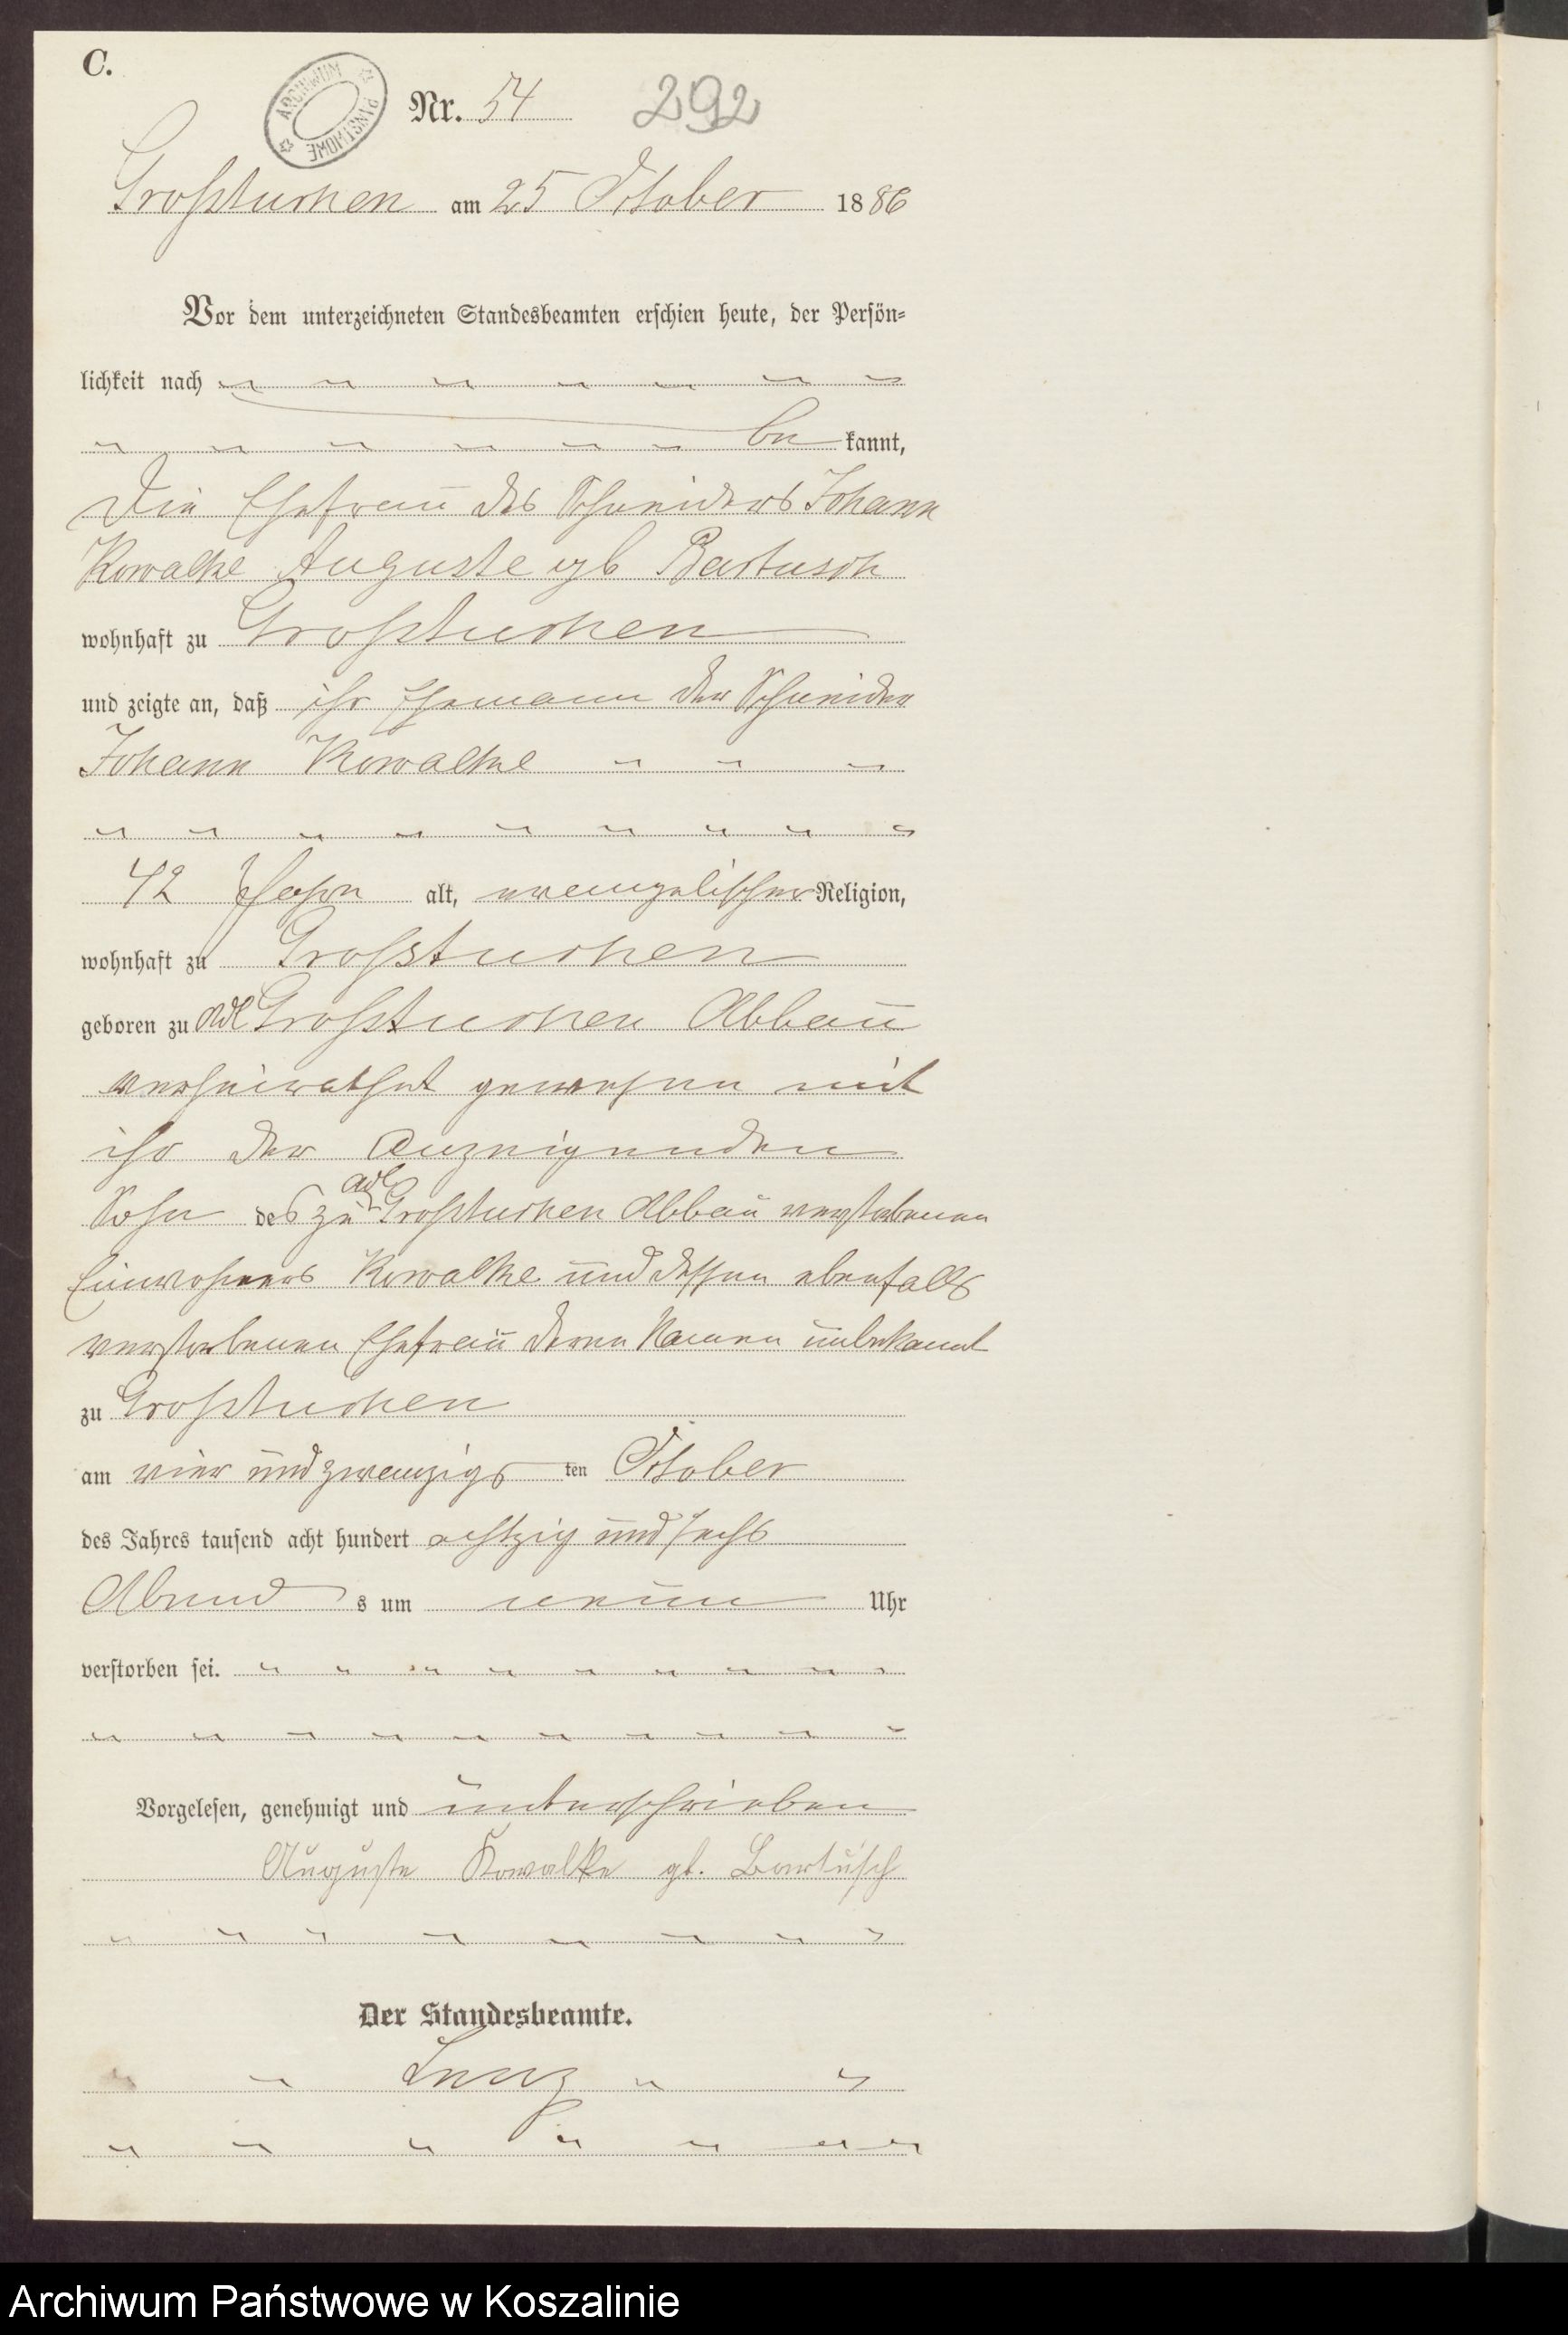 C.
ARCHIWUM PAŃSTWOWE
Nr. 54 292
Großtuchen am 25 October 1886
Vor dem unterzeichneten Standesbeamten erschien heute, der Persön-
lichkeit nach
be kannt,
die Ehefrau des Schneiders Johann
Kowalke Auguste geb Bartusch
wohnhaft zu Großtuchen
und zeigte an, daß ihr Ehemann der Schneider
Johann Kowalke
42 Jahre alt, evangelischer Religion,
wohnhaft zu Großtuchen
geboren zu adl Großtuchen Abbau
verheirathet gewesen mit
ihr der Anzeigenden
Sohn des zu adl Großtuchen Abbau verstorbenen
Einwohners Kowalke und dessen ebenfalls
verstorbenen Ehefrau deren Namen unbekannt
zu Großtuchen
am vier und zwanzigs ten October
des Jahres tausend acht hundert achtzig und sechs
Abend s um neun Uhr
verstorben sei.
Vorgelesen, genehmigt und unterschrieben
Auguste Kowalke gb. Bartusch
Der Standesbeamte.
Lenz
Archiwum Państwowe w Koszalinie